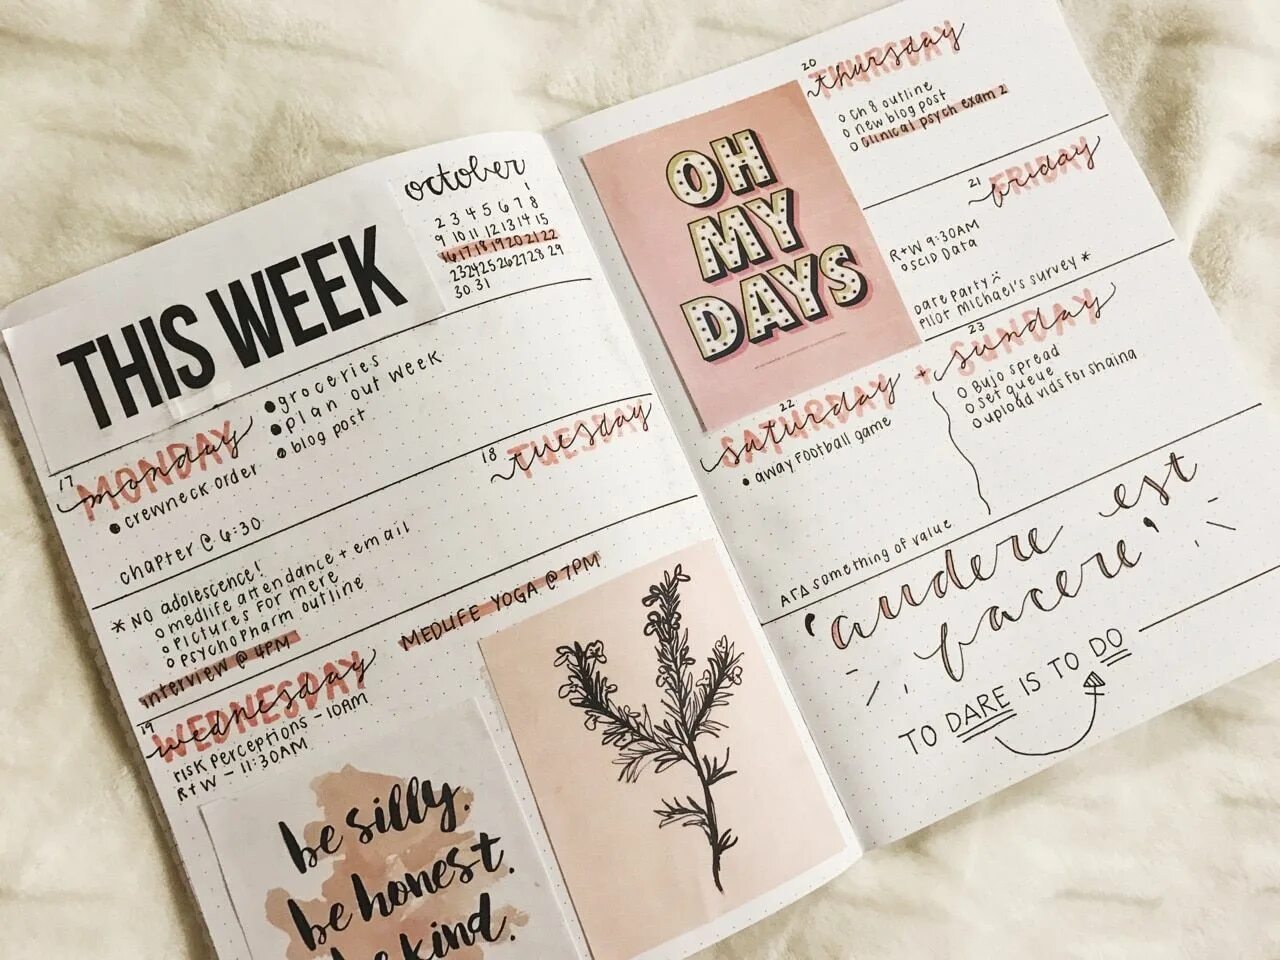 THIS WEEK
october
1
2 3 4 5 6 7 8
9 10 11 12 13 14 15
16 17 18 19 20 21 22
23 24 25 26 27 28 29
30 31
17
MONDAY
monday
groceries
plan out week
blog post
crewneck order
chapter @ 6:30
18
TUESDAY
tuesday
* NO adolescence!
medlife attendance + email
pictures for merc
psychopharm outline
interview @ 4PM
MEDLIFE YOGA @ 7PM
19
WEDNESDAY
wednesday
risk perceptions - 10AM
R+W - 11:30AM
be silly.
be honest.
be kind.
OH
MY
DAYS
20
THURSDAY
thursday
Ch 8 outline
new blog post
Clinical psych exam 2
21
FRIDAY
friday
R+W 9:30AM
SCID Data
Date Party
Pilot Michael's survey *
22
SATURDAY
saturday +
away football game
23
SUNDAY
sunday
Bujo spread
set queue
upload vids for shaina
ΑΓΔ something of value
'audere est
facere'
TO DARE IS TO DO